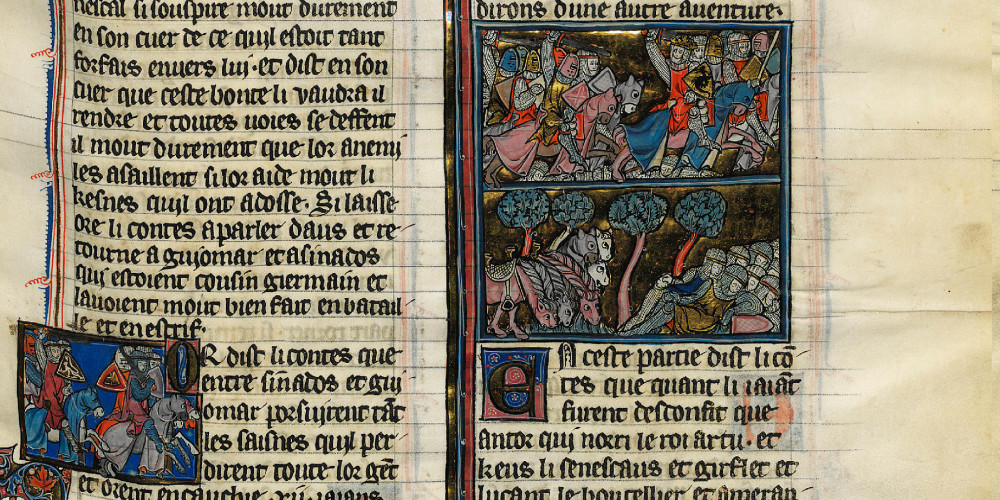 nescal si souspire mout durement
en son cuer de ce quil estoit tant
forfais envers lui · et dist en son
cuer que ceste bonte li vaudra il
rendre et toutes voies se deffent
il mout durement que lor anemi
les asaillent si lor aide mout li
kesnes quil ont adosse · Si laisse
ore li contes a parler daus et re
torne a guiomar et a sinados
qui estoient cousin giermain et
lavoient mout bien fait en batail
le et en estrif ·
OR dist li contes que
entre sinados et gui
omar porsuirent tāt
les saisnes quil per
dirent toute lor gēt
et orent
dirons dune autre aventure ·
EN ceste partie dist li cō
tes que quant li iaiāt
furent desconfit que
antor qui norri le roi artu · et
keus li senescaus et girflet et
lucant le bouteillier et